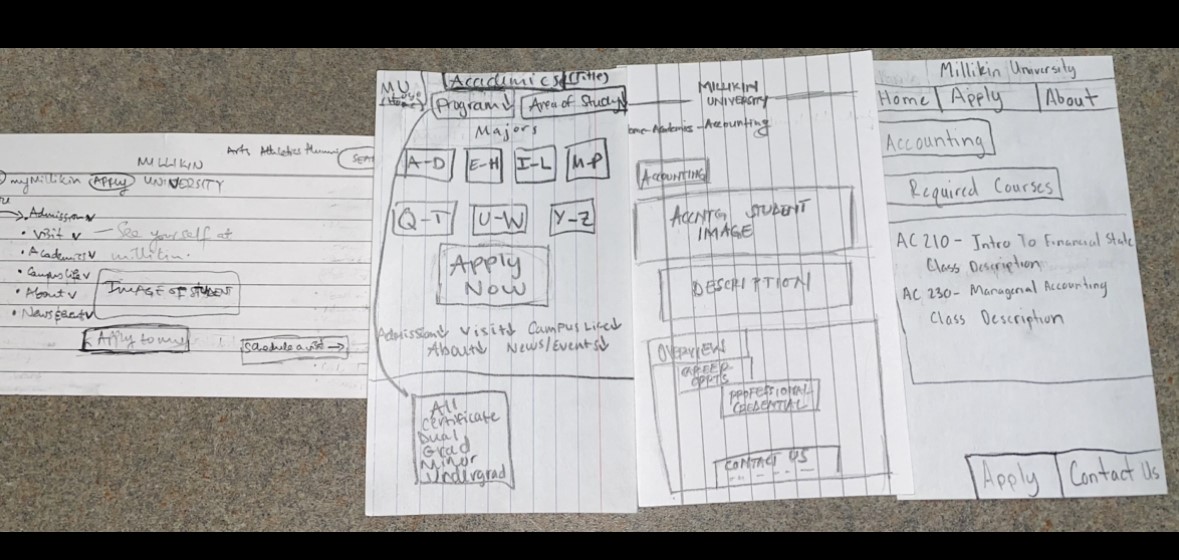 Arts Athletics
MILLIKIN
UNIVERSITY
myMillikin APPLY
Admission
• Visit
• Academics
• Campus Life
• About
• News
See yourself at
millikin.
IMAGE OF STUDENT
Apply to
Schedule a visit →
MU
Academics (Title)
Program↓ Area of Study↓
Majors
A-D E-H I-L M-P
Q-T U-W Y-Z
Apply
Now
Admission↓ Visit↓ Campus Life↓
About↓ News/Events↓
All
Certificate
Dual
Grad
Minor
Undergrad
MILLIKIN
UNIVERSITY
Academics - Accounting
ACCOUNTING
ACCNTG STUDENT
IMAGE
DESCRIPTION
OVERVIEW
CAREER
OPPTS
PROFESSIONAL
CREDENTIAL
CONTACT US
Millikin University
Home Apply About
Accounting
Required Courses
AC 210 - Intro To Financial State
Class Description
AC 230 - Managerial Accounting
Class Description
Apply Contact Us